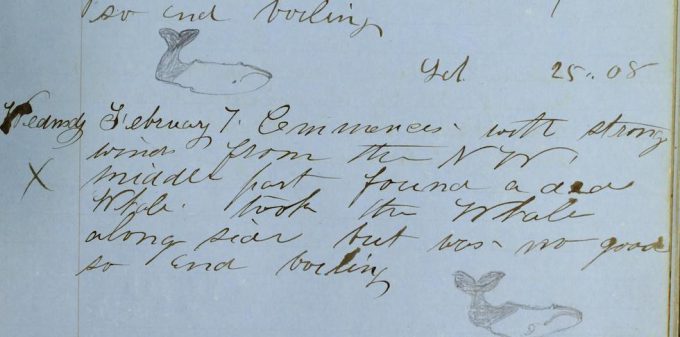 so end boiling
Lat. 25..08
Wednsdy February 7. Commences with strong
winds from the NW.
X middle part found a ded
Whale. took the Whale
along side but was no good
so end boiling